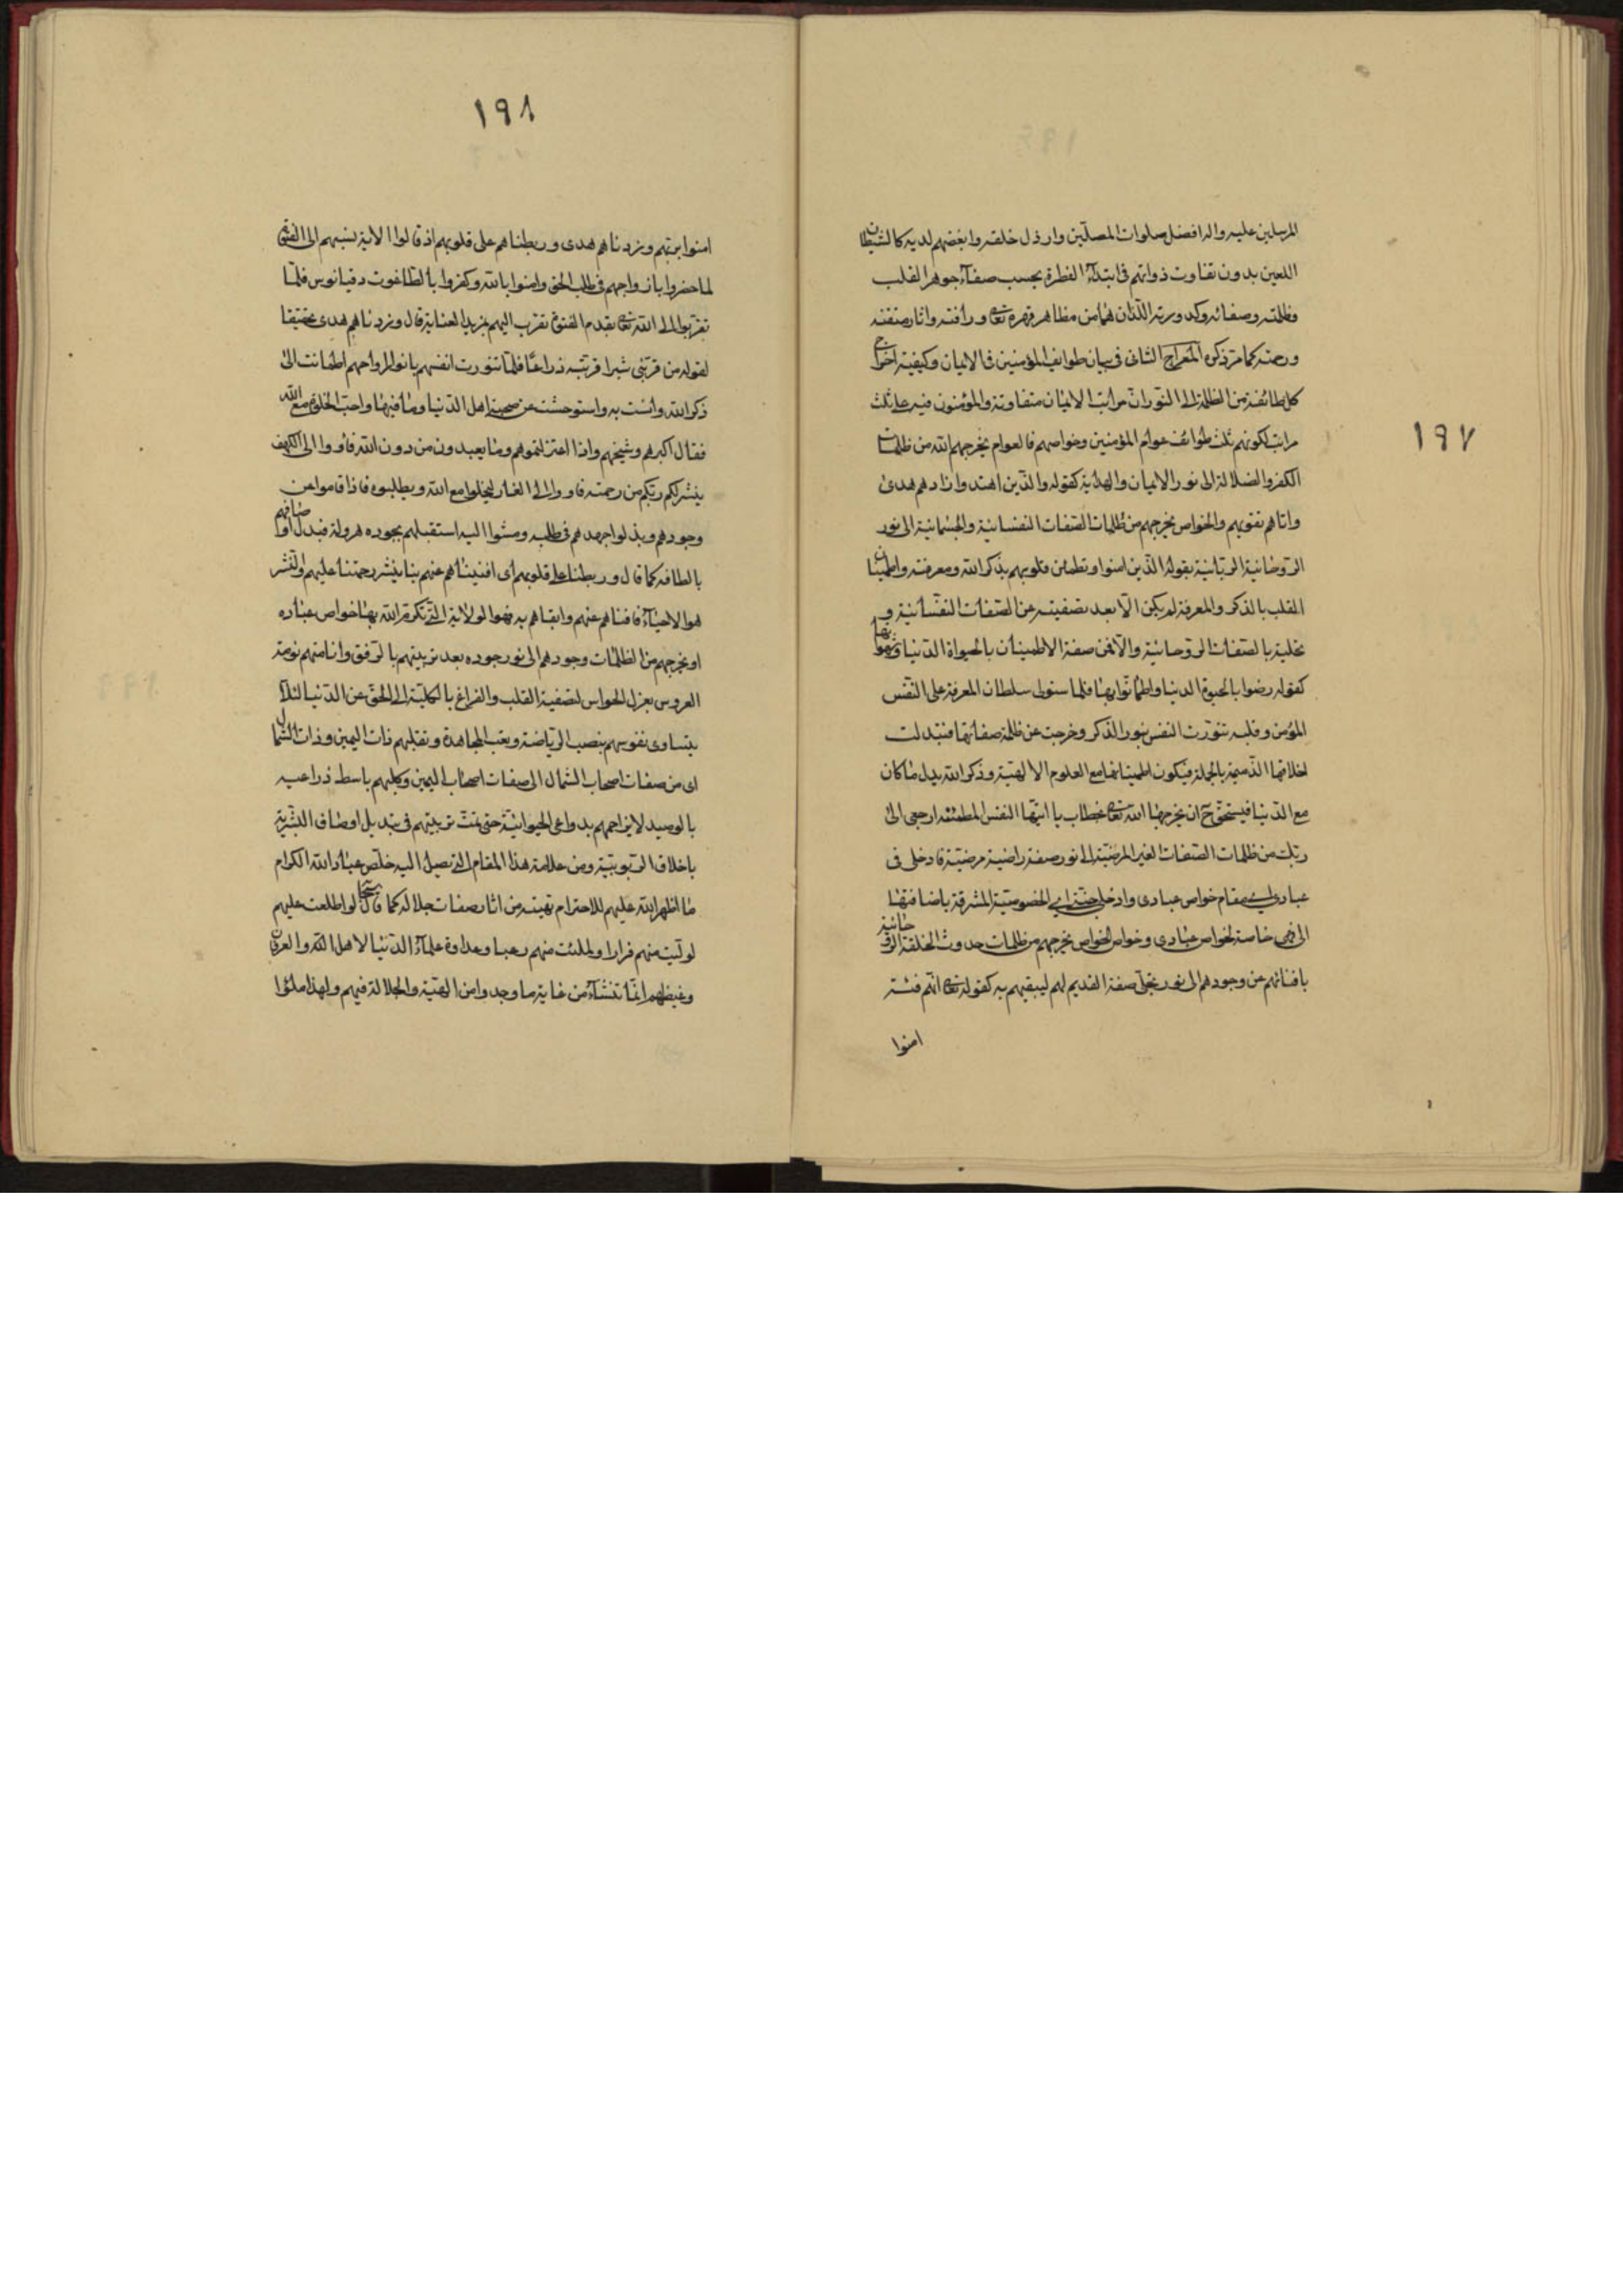 ١٩٧
المرسلين عليه واله افضل صلوات المصلين وارذل خلقه وابغضهم لديه كالشيطان
اللعين بدون تفاوت ذواتهم فى ابتداء الفطرة بحسب صفاء جوهر القلب
وظلمته وصفائه وكدورته اللذان هما من مظاهر قهره تعالى ورأفته واثار
ورحمته كما مر ذكره المعراج الثانى فى بيان طوايف المؤمنين فى الايمان وكيفية اخراج
كل طائفة من الظلمة الى النور ان مراتب الايمان متفاوتة والمؤمنون فيه على ثلث
مراتب لكونهم ثلث طوائف عوام المؤمنين وخواصهم فالعوام يخرجهم الله من ظلمات
الكفر والضلالة الى نور الايمان والهداية كقوله والذين اهتدوا زادهم هدى
واتاهم تقويهم والخواص يخرجهم من ظلمات الصفات النفسانية والجسمانية الى نور
الروحانية الربانية بقوله الذين امنوا وتطمئن قلوبهم بذكر الله ومعرفته واطمينان
القلب بالذكر والمعرفة لم يكن الا بعد تصفيته عن الصفات النفسانية و
تحليته بالصفات الروحانية والا فمن صفة الاطمينان بالحيواة الدنيا وشهواتها
كقوله رضوا بالحيوة الدنيا واطمانوا بها فلما ستولى سلطان المعرفة على النفس
المؤمن وقلبه تنورت النفس بنور الذكر وخرجت عن ظلمة صفاتها فتبدلت
اخلاقها الذميمة بالجملة فيكون اطمينانها مع العلوم الالهية وذكر الله بدل ما كان
مع الدنيا فيستحق ح ان يخرجها الله تعالى بخطاب يا ايتها النفس المطمئنة ارجعى الى
ربك من ظلمات الصفات الغير المرضية الى نور صفة راضية مرضية فادخلى فى
عبادى اى مقام خواص عبادى وادخلى جنتى اى الخصوصية المشرقة باضافتها
الى فهى خاصة لخواص عبادى وخواص الخواص يخرجهم من ظلمات حدوث الخلقة الروحانية
بافنائهم عن وجودهم الى نور تجلى صفة القديم لهم ليبقيهم به كقوله تعالى انهم فتية
امنوا
١٩٨
امنوا بربهم وزدناهم هدى وربطناهم على قلوبهم اذ قالوا الاية نسبهم الى الفتى
لما حضروا بازواجهم فى طلب الحق وامنوا بالله وكفروا بالطاغوت دقيانوس فلما
تقربوا الى الله تعالى بقدم الفتوة تقرب اليهم بمزيد العناية قال وزدناهم هدى تحقيقا
لقوله من قربنى شبرا قربته ذراعا فلما تنورت انفسهم بانوار ارواحهم اطمانت الى
ذكر الله وانست به واستوحشت عن صحبة اهل الدنيا وما فيها واحب الخلوة مع الله
فقال اكبرهم وشيخهم واذا اعتزلتموهم وما يعبدون من دون الله فأووا الى الكهف
ينشر لكم ربكم من رحمته فاووا الى الغار ليخلوا مع الله ويطلبوه فاذا قاموا عن
وجودهم وبذلوا جهدهم فى طلبه ومشوا اليه استقبلهم بجوده هرولة فبدل اوصافهم
بالطافه كما قال وربطنا على قلوبهم اى افنيناهم عنهم بنا ينشر رحمتنا عليهم والنشر
هو الاحياء فافناهم عنهم وابقاهم به فهو الولاية التى تكرم الله بها خواص عباده
او يخرجهم من الظلمات وجودهم الى نور جوده بعد تربيتهم بالرفق وانامتهم نومة
العروس بعزل الحواس لتصفية القلب والفراغ بالكلية الى الحق عن الدنيا لئلا
يتساوى نفوسهم بنصب الرياضة وتعب المجاهدة ونقلبهم ذات اليمين وذات الشمال
اى من صفات اصحاب الشمال الى صفات اصحاب اليمين وكلبهم باسط ذراعيه
بالوصيد لايزاحمهم بدواعى الحيوانية حتى تمت تربيتهم فى تبديل اوصاف البشرية
باخلاق الربوبية ومن علامة هذا المقام الذى تصيل اليه خلص عباد الله الكرام
ما اظهر الله عليهم للاحترام تهيبه من اثار صفات جلاله كما قال سبحانه لو اطلعت عليهم
لوليت منهم فرارا ولملئت منهم رعبا وعداوة علماء الدنيا لاهل الله والعرفان
وغيظهم انما تنشاء من غاية ما وجدوا من الهيبة والجلالة فيهم ولهذا ملئوا